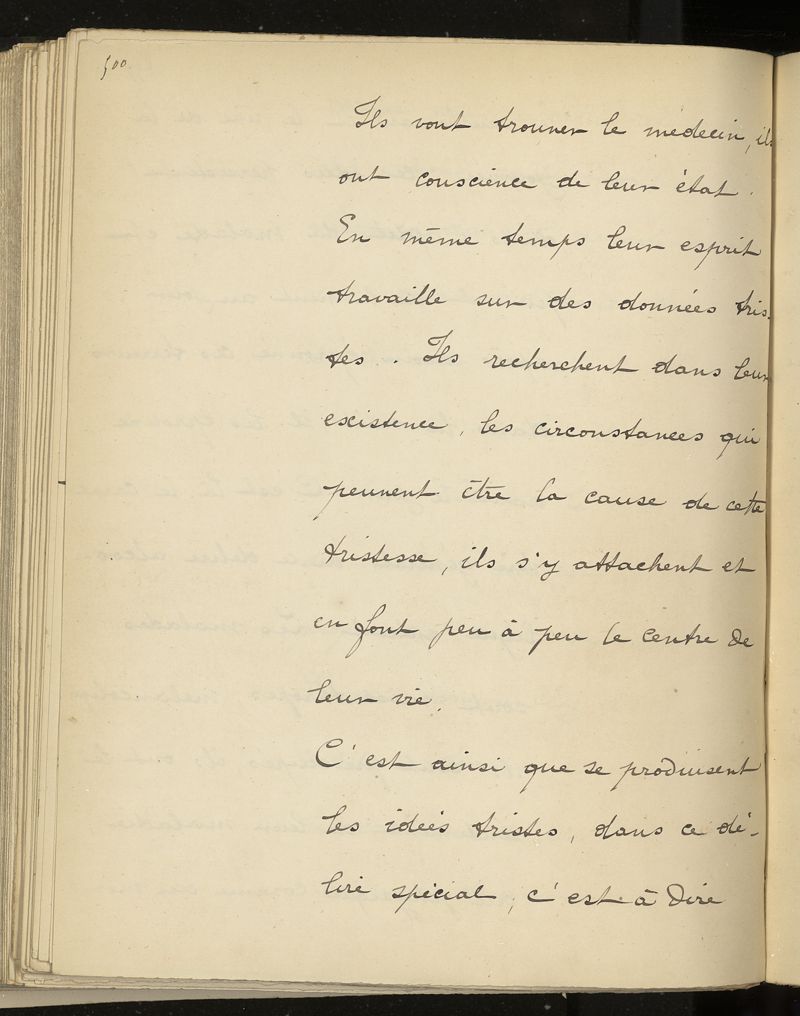 500
Ils vont trouver le médecin, ils
ont conscience de leur état.
En même temps leur esprit
travaille sur des données tris-
tes. Ils recherchent dans leur
existence, les circonstances qui
peuvent être la cause de cette
tristesse, ils s'y attachent et
en font peu à peu le centre de
leur vie.
C'est ainsi que se produisent
les idées tristes, dans ce dé-
lire spécial, c'est à dire